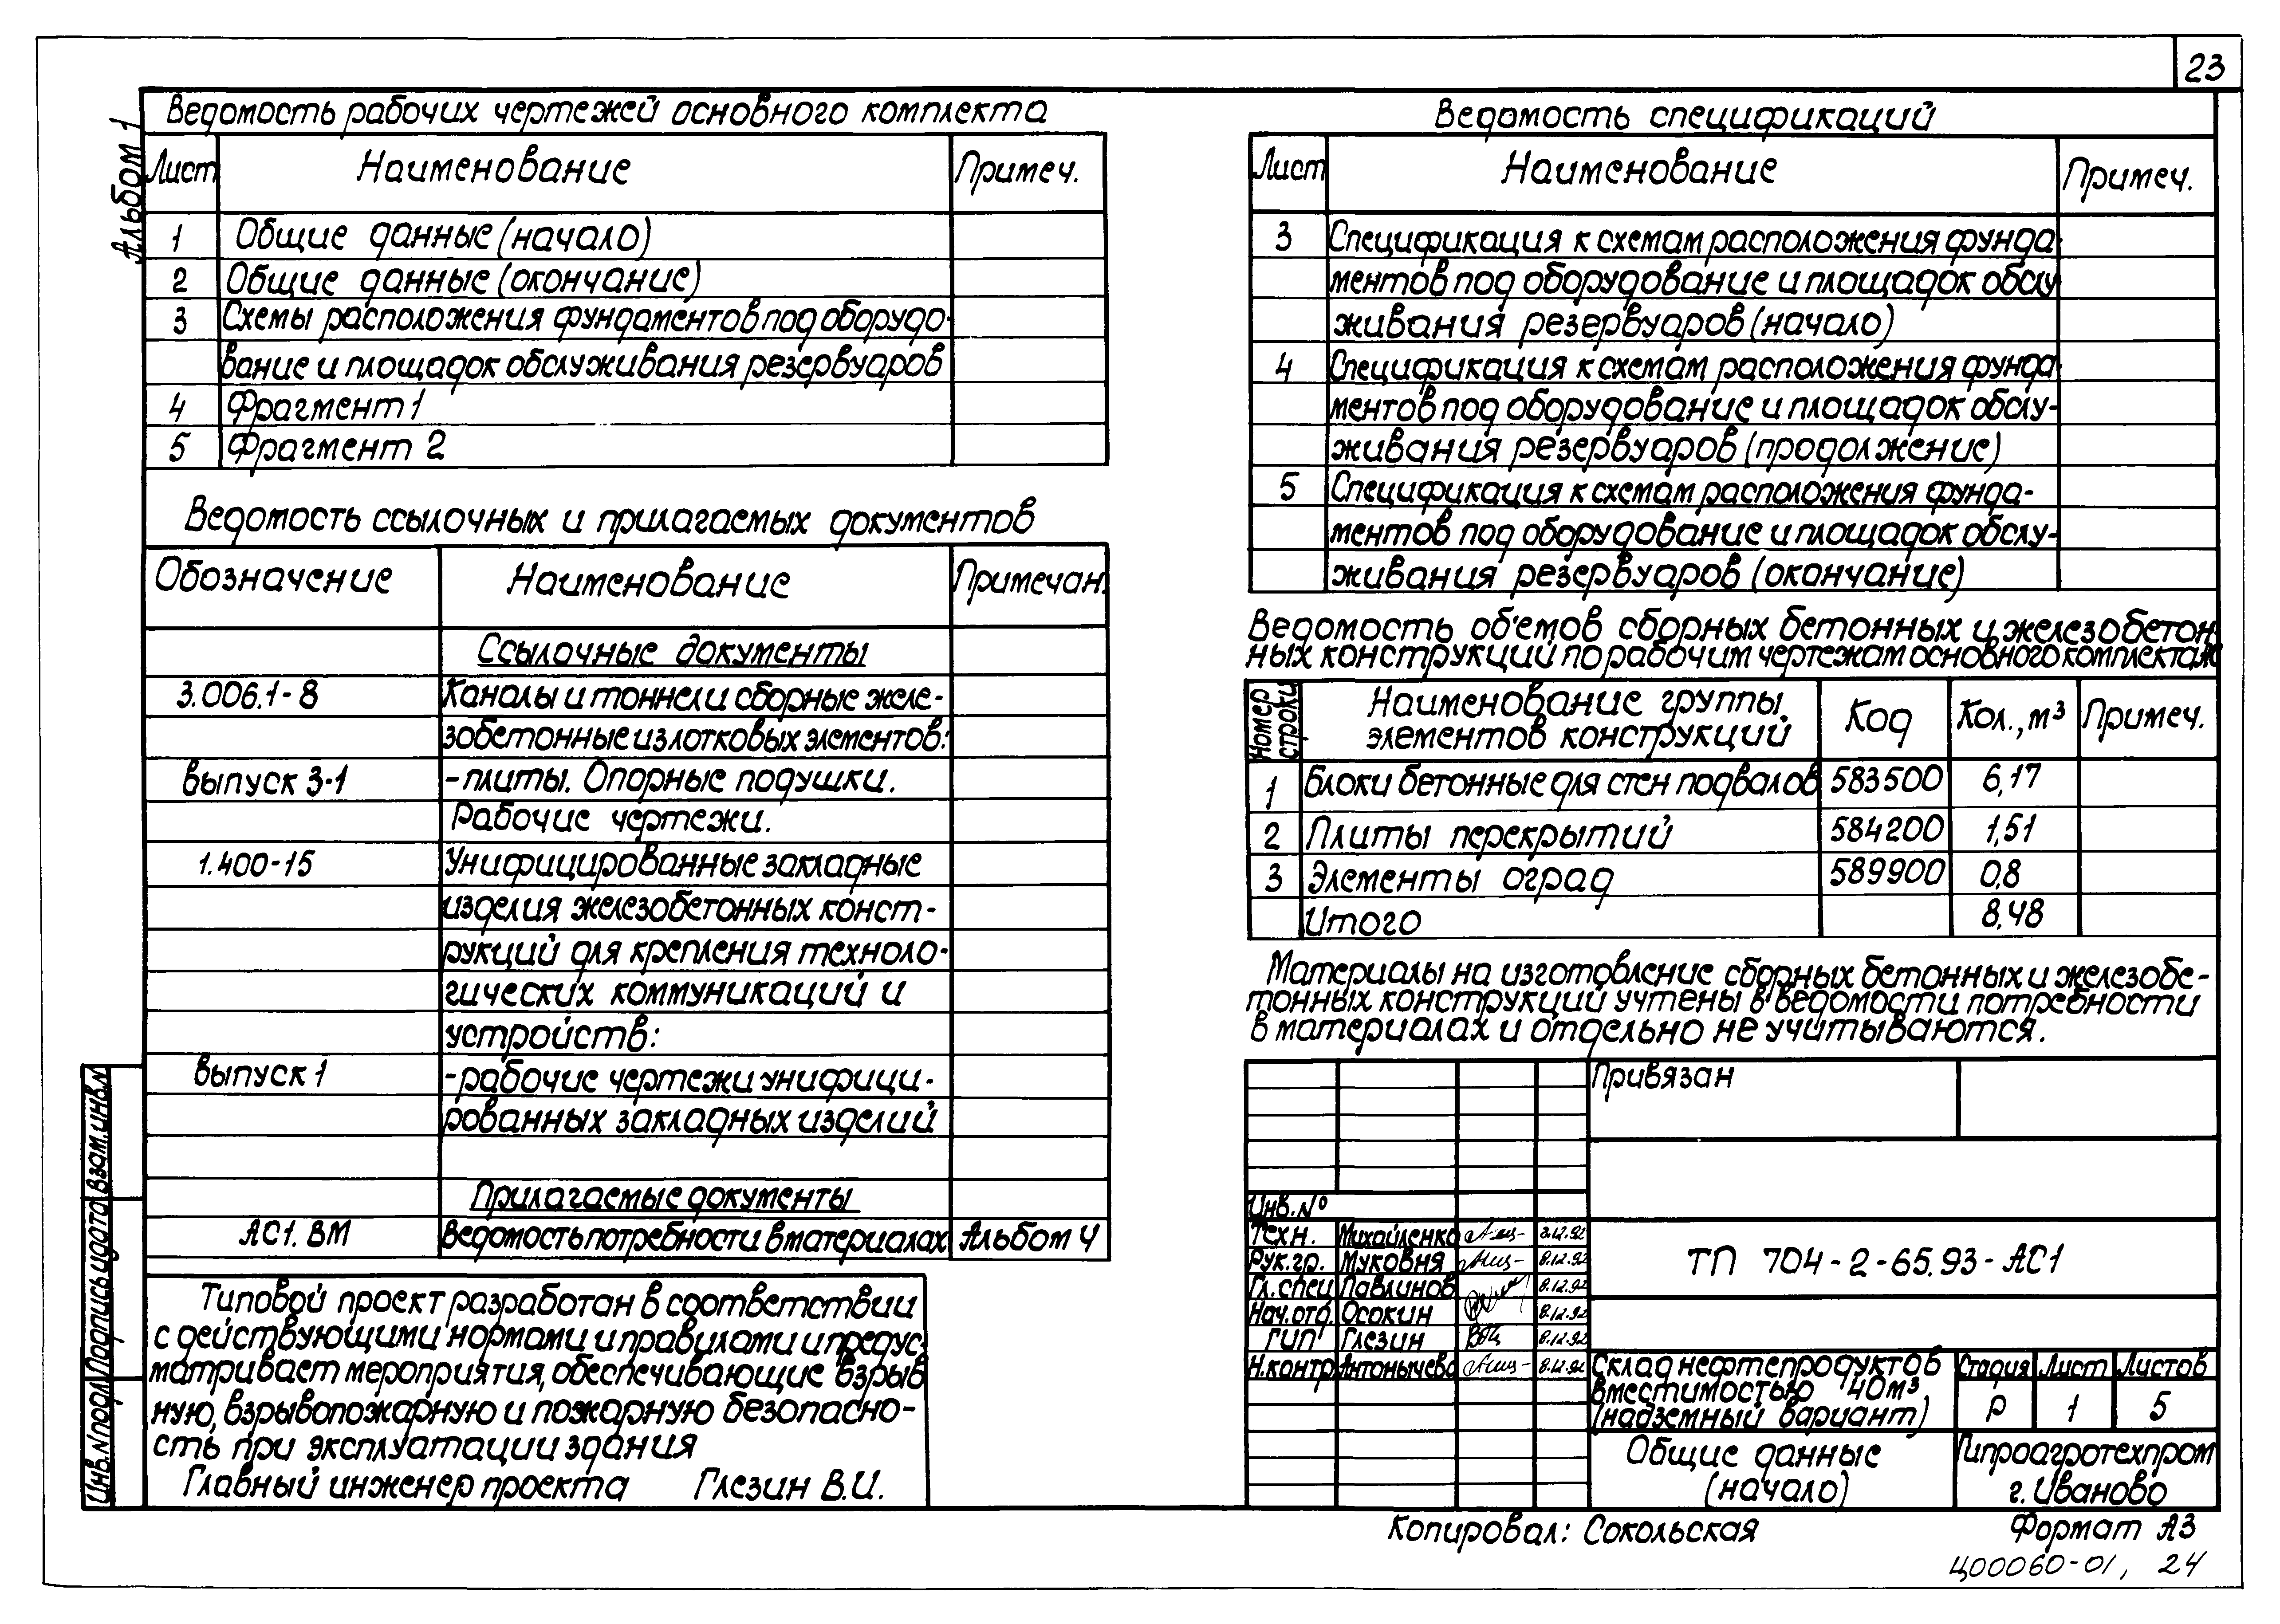 23
Альбом 1
Ведомость рабочих чертежей основного комплекта
Лист Наименование Примеч.
1 Общие данные (начало)
2 Общие данные (окончание)
3 Схемы расположения фундаментов под оборудо-
вание и площадок обслуживания резервуаров
4 Фрагмент 1
5 Фрагмент 2
Ведомость ссылочных и прилагаемых документов
Обозначение Наименование Примечан.
Ссылочные документы
3.006.1-8 Каналы и тоннели сборные желе-
зобетонные из лотковых элементов:
выпуск 3-1 -плиты. Опорные подушки.
Рабочие чертежи.
1.400-15 Унифицированные закладные
изделия железобетонных конст-
рукций для крепления техноло-
гических коммуникаций и
устройств:
выпуск 1 -рабочие чертежи унифици-
рованных закладных изделий
Прилагаемые документы
АС1. ВМ Ведомость потребности в материалах Альбом 4
Типовой проект разработан в соответствии
с действующими нормами и правилами и предус-
матривает мероприятия, обеспечивающие взрыв
ную, взрывопожарную и пожарную безопасно-
сть при эксплуатации здания
Главный инженер проекта Глезин В.И.
Взам.инв.N
Подпись и дата
Инв.N подл
Ведомость спецификаций
Лист Наименование Примеч.
3 Спецификация к схемам расположения фунда
ментов под оборудование и площадок обслу
живания резервуаров (начало)
4 Спецификация к схемам расположения фунда
ментов под оборудование и площадок обслу-
живания резервуаров (продолжение)
5 Спецификация к схемам расположения фунда-
ментов под оборудование и площадок обслу-
живания резервуаров (окончание)
Ведомость об'емов сборных бетонных и железобетон
ных конструкций по рабочим чертежам основного комплекта АС
Номер строки Наименование группы элементов конструкций Код Кол., м³ Примеч.
1 Блоки бетонные для стен подвалов 583500 6,17
2 Плиты перекрытий 584200 1,51
3 Элементы оград 589900 0,8
Итого 8,48
Материалы на изготовление сборных бетонных и железобе-
тонных конструкций учтены в ведомости потребности
в материалах и отдельно не учитываются.
Привязан
Инв.№
Техн. Михайленко
Рук.гр. Муковня 8.12.92
Гл.спец Павлинов 8.12.92
Нач.отд. Осокин 8.12.92
ГИП Глезин 8.12.92
Н.контр Антонычева 8.12.92
ТП 704-2-65.93-АС1
Склад нефтепродуктов
вместимостью 40м³
(надземный вариант)
Стадия Лист Листов
Р 1 5
Общие данные
(начало)
Гипроагротехпром
г. Иваново
Копировал: Сокольская Формат А3
Ц00060-01, 24